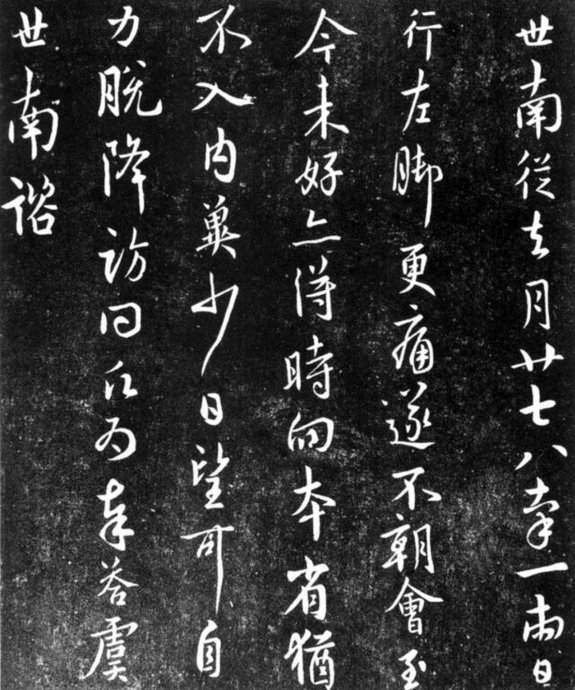 世南從去月廿七八牽一兩日
行左脚更痛遂不朝會至
今未好亦得時向本省猶
不入內冀少日望可自
力脫降訪問丘為奉答虞
世南諮